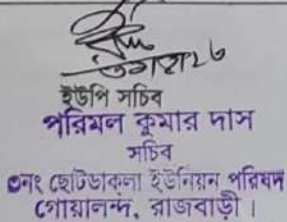 ইউপি সচিব
পরিমল কুমার দাস
সচিব
৩নং ছোটভাকলা ইউনিয়ন পরিষদ
গোয়ালন্দ, রাজবাড়ী।